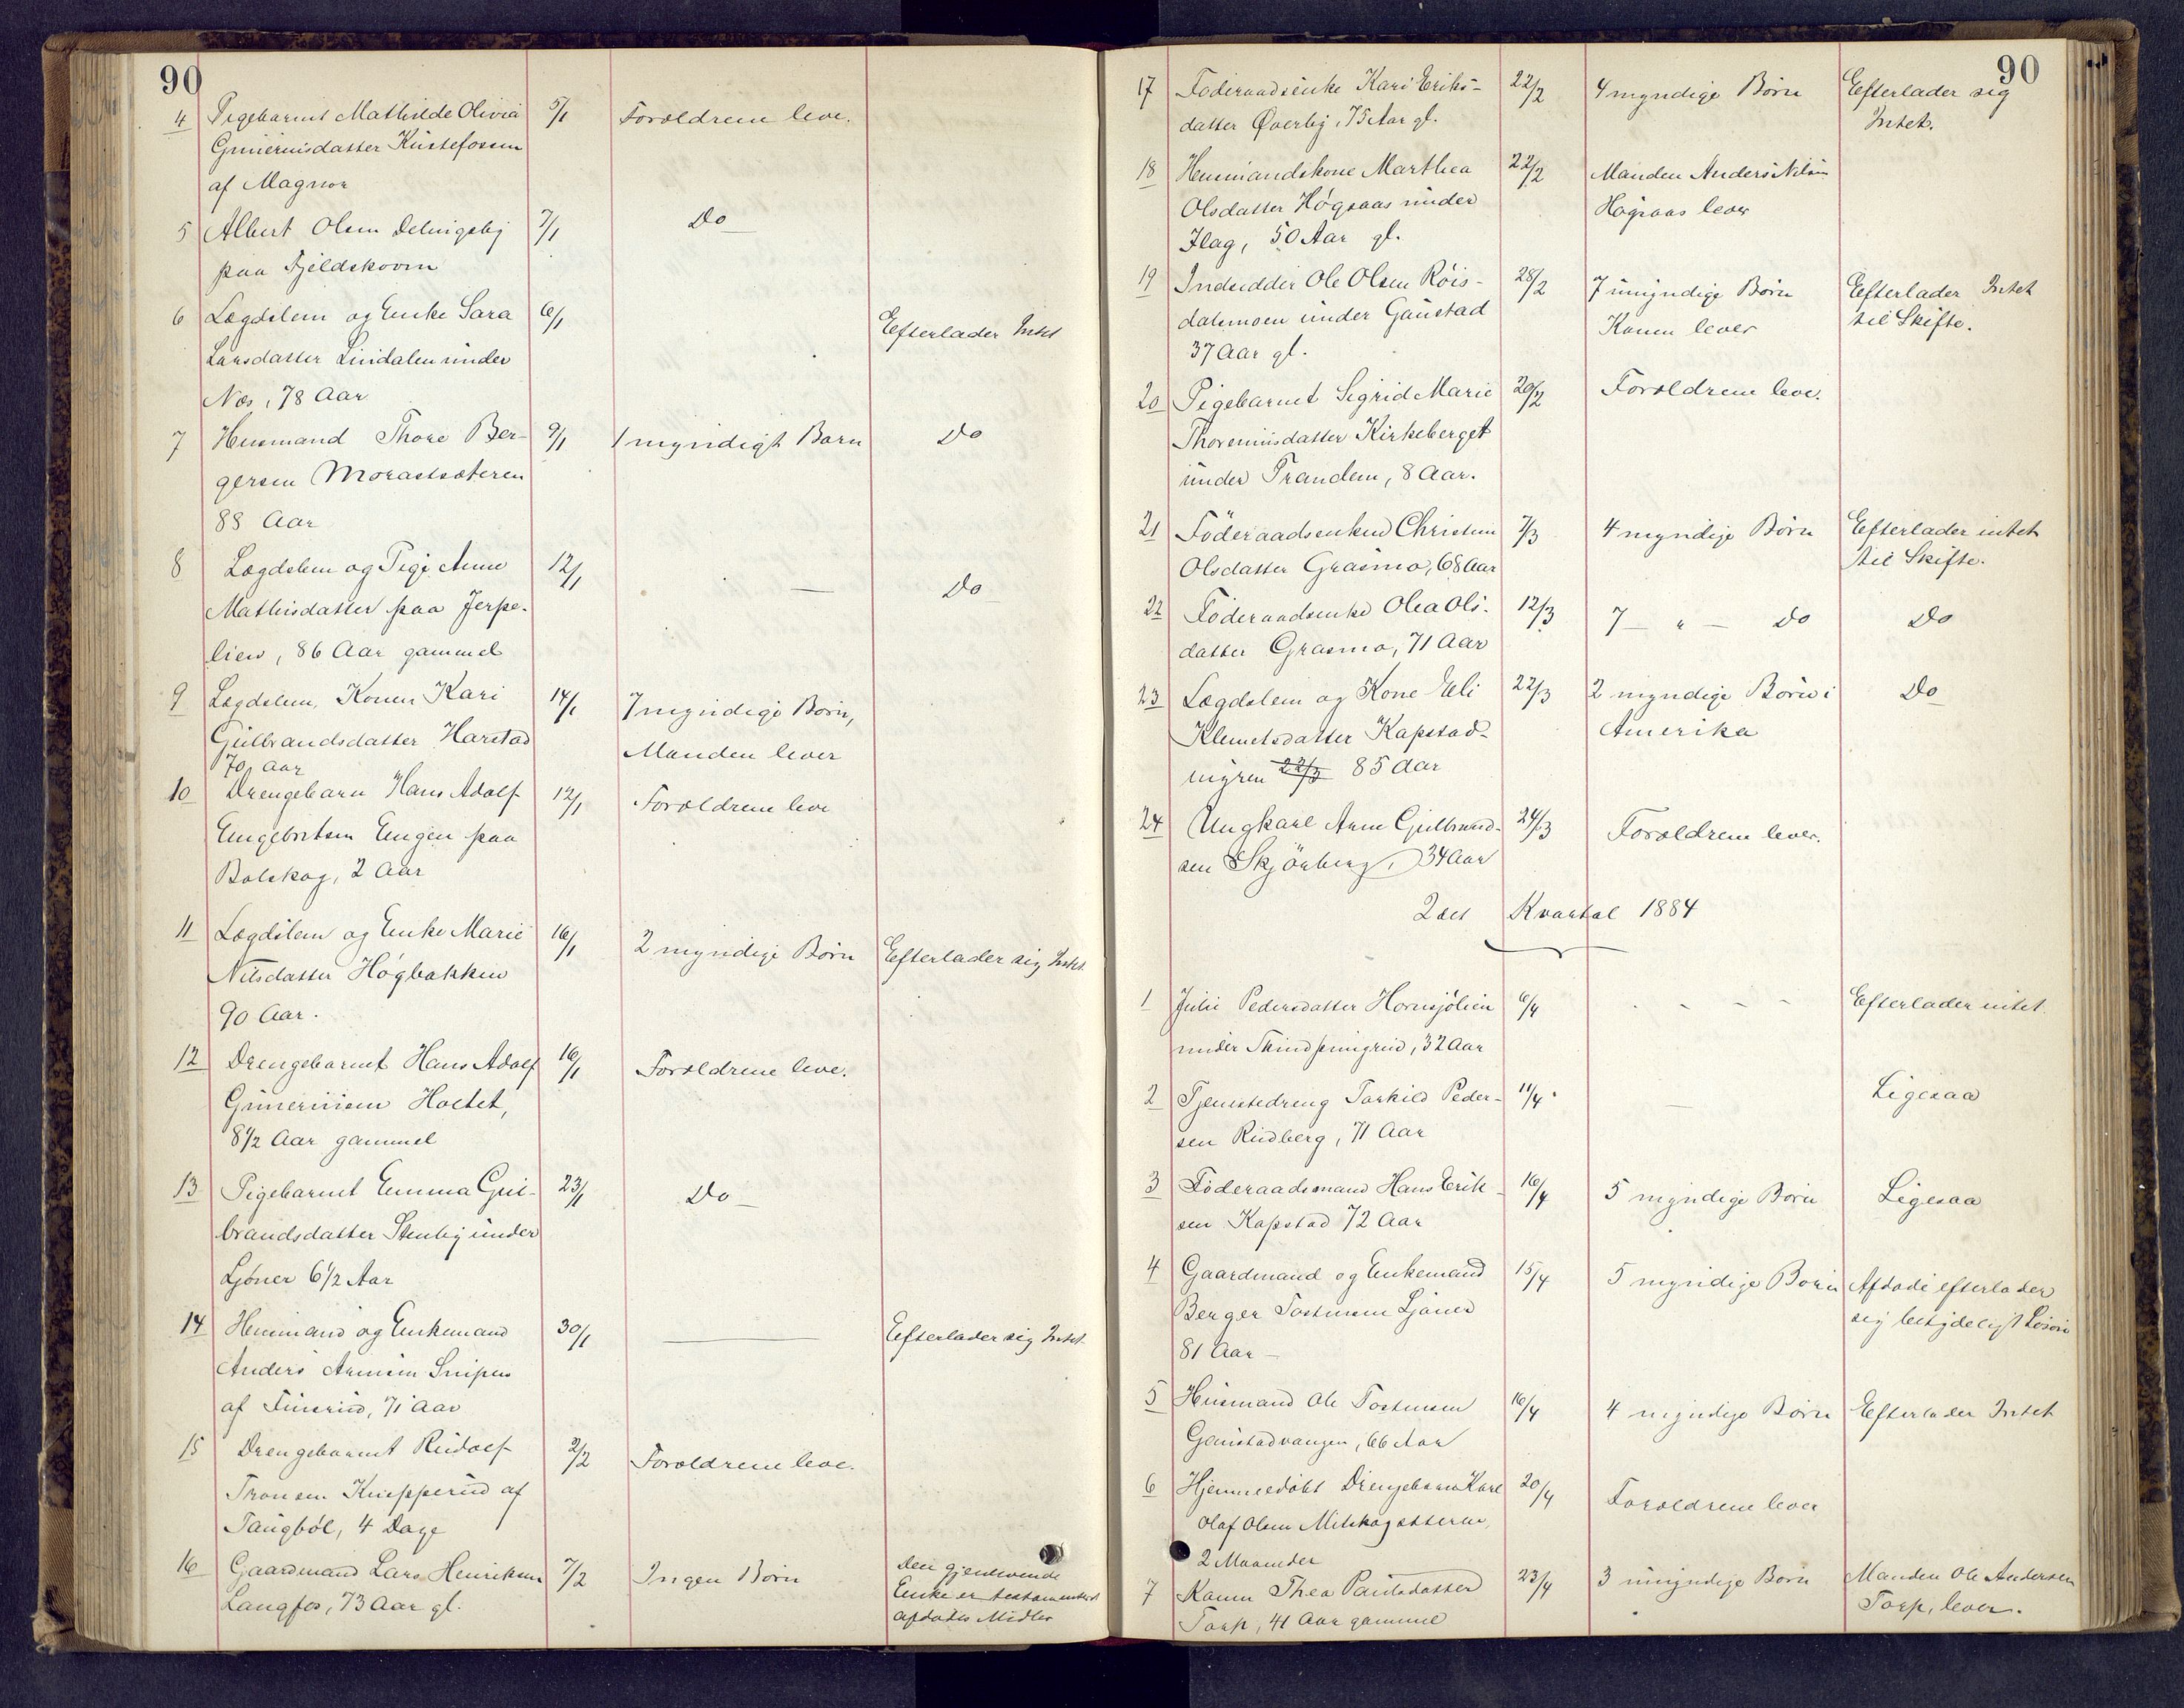 90
4 Pigebarnet Mathilde Olivia 5/1 Forældrene leve.
Guneriusdatter Kistefossen
af Magnor
5 Albert Olsen Delingsby 7/1 Do
paa Fjeldskoven
6 Lægdslem og Enke Sara 6/1 Efterlader Intet
Larsdatter Lindalen under
Næs, 78 Aar
7 Husmand Thore Ber- 9/1 1 myndigt Barn Do
gersen Morastsæteren
88 Aar
8 Lægdslem og Pige Anne 12/1 — Do
Mathisdatter paa Jerpe-
lien, 86 Aar gammel
9 Lægdslem, Konen Kari 14/1 7 myndige Børn,
Gulbrandsdatter Harstad Manden lever
70 Aar
10 Drengebarn Hans Adolf 12/1 Forældrene leve
Engebretsen Engen paa
Bolskog, 2 Aar
11 Lægdslem og Enke Marie 16/1 2 myndige Børn Efterlader sig Intet
Nilsdatter Høgbakken
90 Aar.
12 Drengebarnet Hans Adolf 16/1 Forældrene leve.
Guneriusen Holtet,
8 1/2 Aar gammel
13 Pigebarnet Emma Gul- 23/1 Do
brandsdatter Stenby under
Ljøner 6 1/2 Aar
14 Husmand og Enkemand 30/1 — Efterlader sig Intet
Anders Arnesen Snipen
af Finsrud, 71 Aar
15 Drengebarnet Rudolf 2/2 Forældrene leve.
Tronsen Knepperud af
Tangbøl, 4 Dage
16 Gaardmand Lars Henriksen 7/2 Ingen Børn Den gjenlevende
Langfos, 73 Aar gl. Enke er testamenteret
afdødes Midler
90
17 Føderaadsenke Kari Eriks- 22/2 4 myndige Børn Efterlader sig
datter Øverby, 75 Aar gl. Intet.
18 Husmandskone Marthea 22/2 Manden Anders Nilsen
Olsdatter Høgaas under Høgaas lever
Flag, 50 Aar gl.
19 Indsidder Ole Olsen Røis- 28/2 7 umyndige Børn Efterlader Intet
dalsmoen under Gaustad Konen lever til Skifte.
37 Aar gl.
20 Pigebarnet Sigrid Marie 20/2 Forældrene leve.
Thoreniusdatter Kirkeberget
under Trandem, 8 Aar.
21 Föderaadsenken Christine 7/3 4 myndige Børn Efterlader intet
Olsdatter Grasmo, 68 Aar til Skifte.
22 Föderaadsenke Olea Ols- 12/3 7 — " — Do Do
datter Grasmo, 71 Aar
23 Lægdslem og Kone Eli 22/3 2 myndige Børn i Do
Klemetsdatter Kapstad- Amerika
nygren 22/3 85 Aar
24 Ungkarl Arne Gulbrand- 24/3 Forældrene lever.
sen Skjönberg, 34 Aar
2det Kvartal 1884
1 Julie Pedersdatter Hornsjølien 6/4 - - - - Efterlader intet.
under Skindpungrud, 32 Aar
2 Tjenstedreng Torkild Peder- 11/4 — Ligesaa
sen Rudberg, 71 Aar
3 Föderaadsmand Hans Erik- 16/4 5 myndige Børn Ligesaa
sen Kapstad 72 Aar
4 Gaardmand og Enkemand 15/4 5 myndige Børn Afdøde efterlader
Berger Tostensen Ljøner sig betydeligt Løsøre
81 Aar —
5 Husmand Ole Tostensen 16/4 4 myndige Børn Efterlader Intet
Gaustadvangen, 66 Aar
6 Hjemmedøbt Drengebarn Karl 20/4 Forældrene lever
Olaf Olsen Mitskogsæteren,
2 Maaneder
7 Konen Thea Paulsdatter 23/4 3 umyndige Børn Manden Ole Andersen
Torp, 41 Aar gammel Torp, lever.